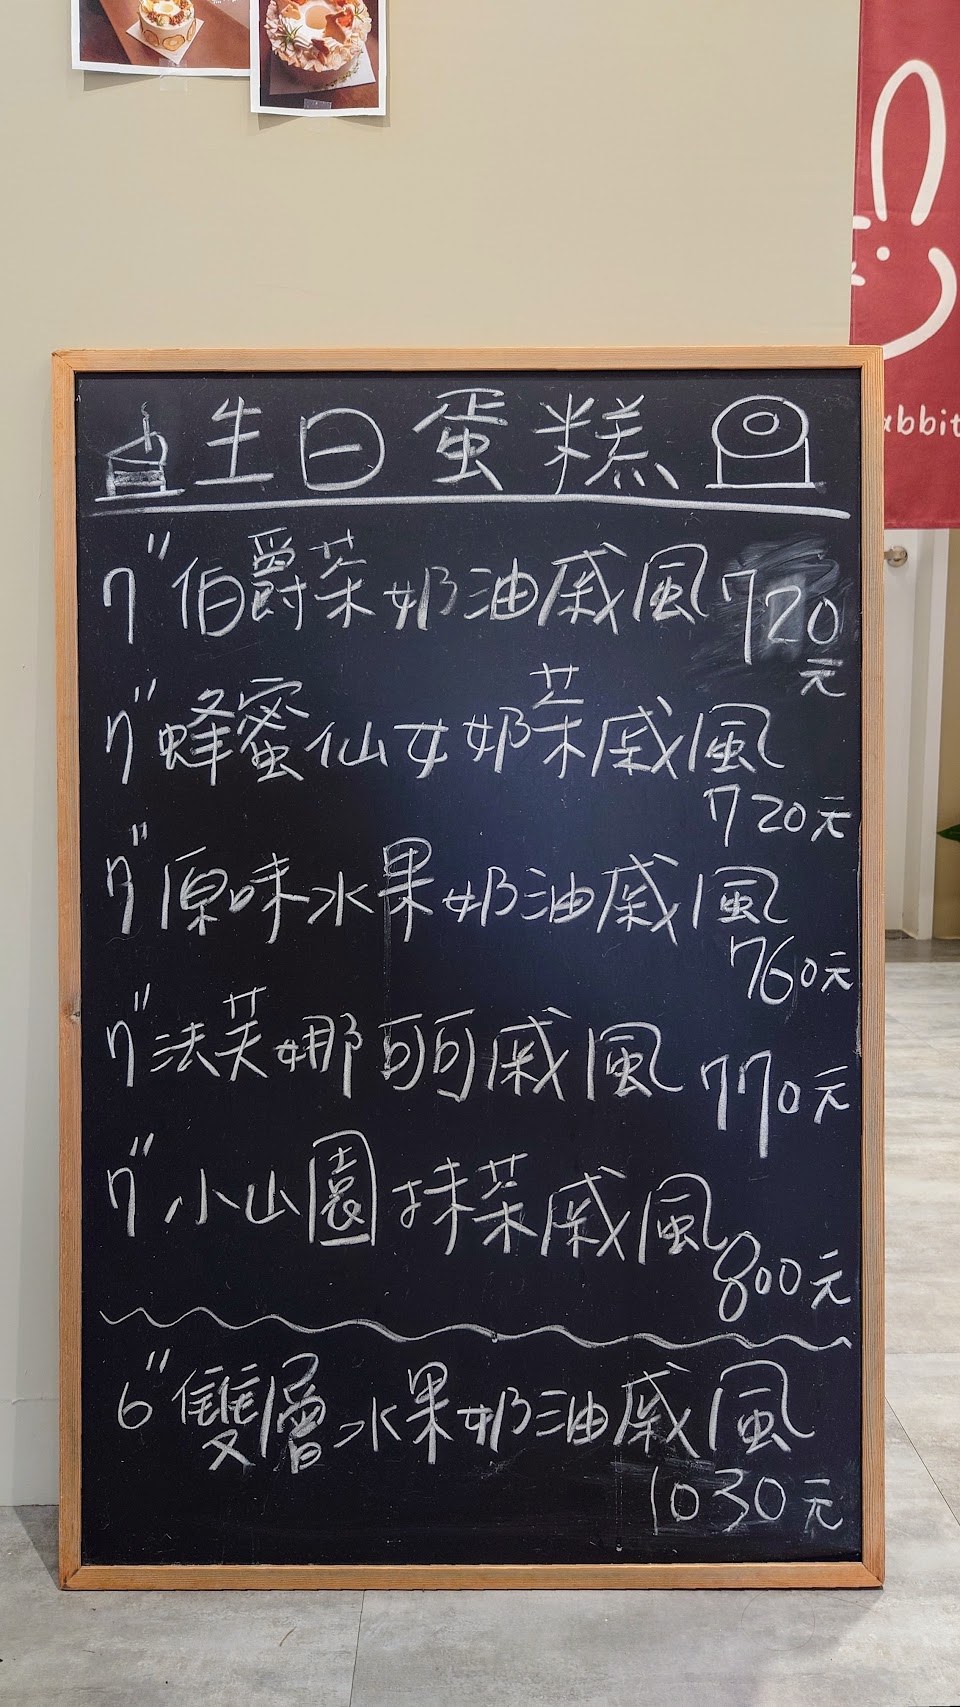 生日蛋糕
7"伯爵茶奶油戚風720
元
7"蜂蜜仙女奶茶戚風
720元
7"原味水果奶油戚風
760元
7"法芙娜可可戚風 770元
7"小山園抹茶戚風
800元
6"雙層水果奶油戚風
1030元
abbit